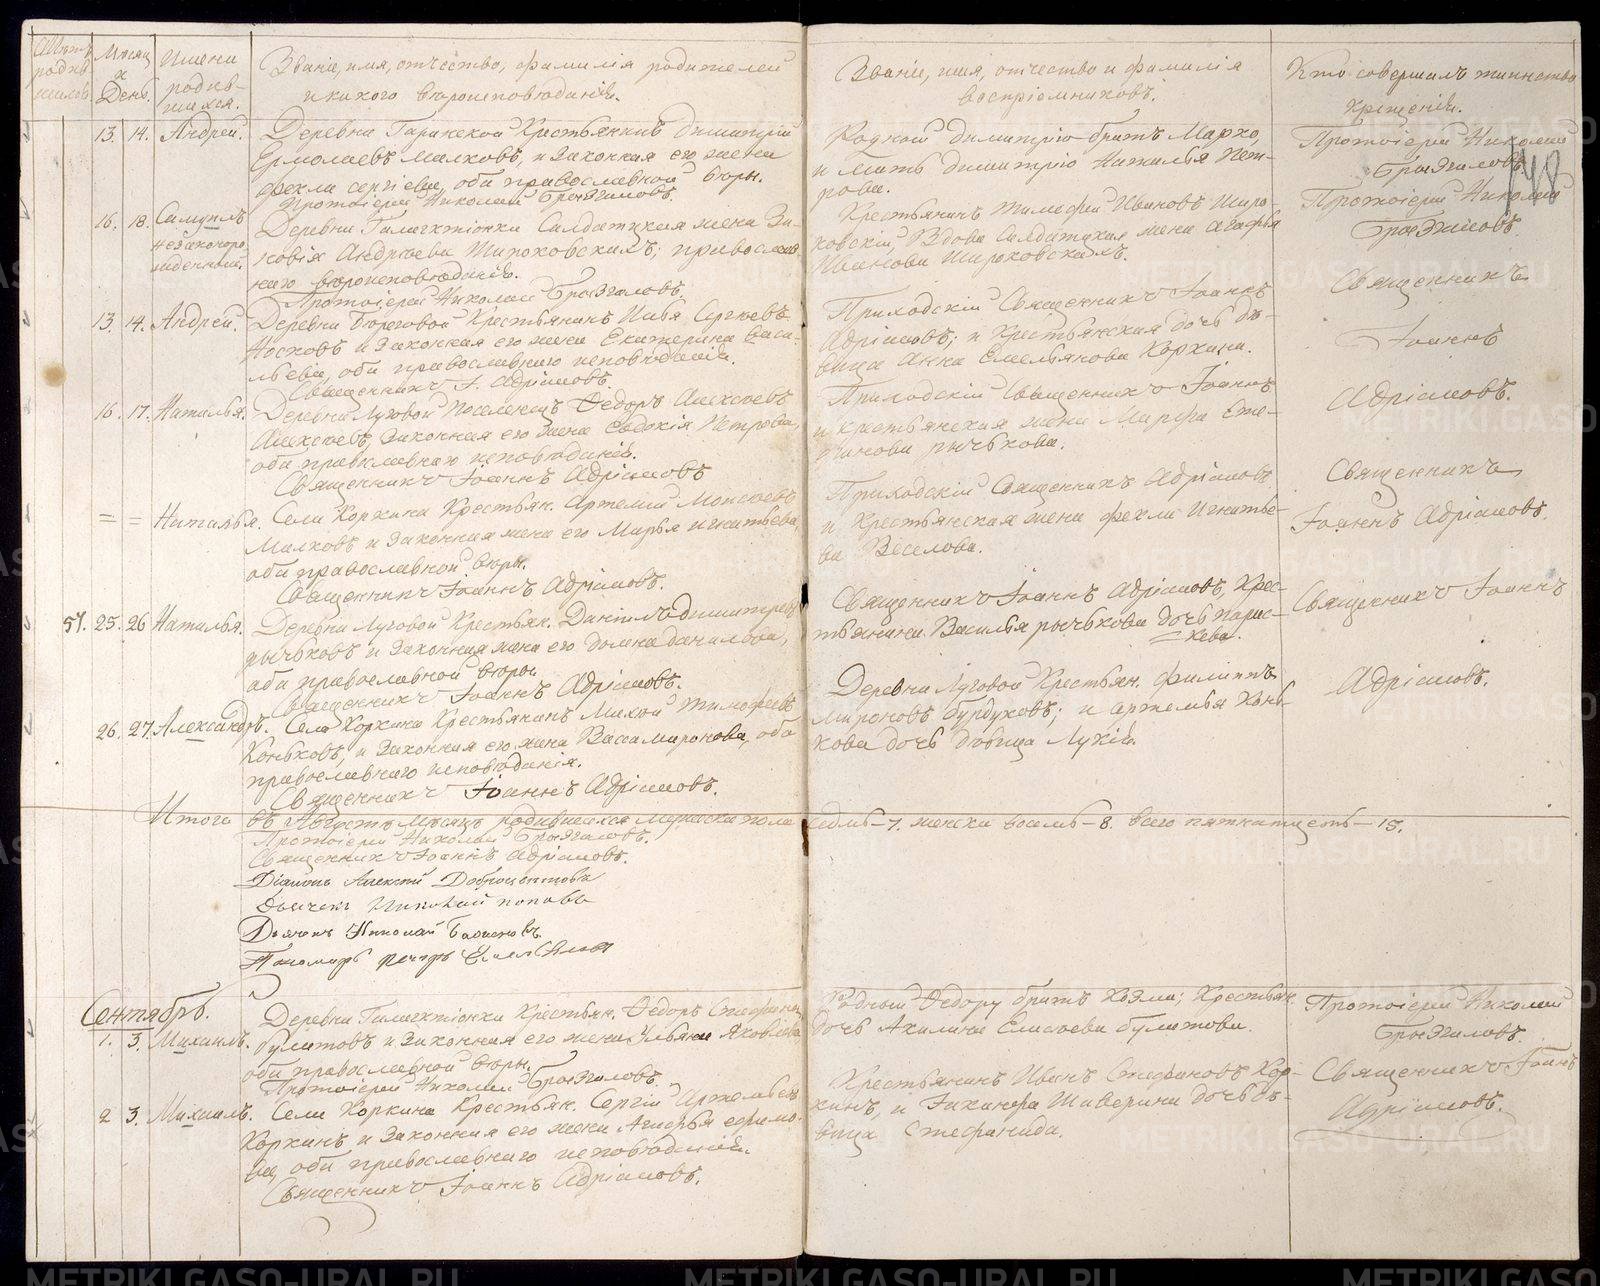 Мѣсяцъ и День.
Имена родив-шихся.
Званіе, имя, отчество, фамилія родителей
и какого вѣроисповѣданія.
Званіе, имя, отчество и фамилія
воспріемниковъ.
Кто совершалъ таинство
крещенія.
148
13. 14. Андрей.
Деревни Крестьянинъ Димитрій
Ермолаевъ Малковъ, и законная его жена
Фекла Сергіева, оба православной вѣры.
Протоіерей Николай
Родной Димитрію братъ Марко,
и мать Димитрію Наталья Пет-
рова.
Протоіерей Николай
16. 18. Самуилъ
незаконоро
жденный.
Деревни Солдатская жена Зи-
новія Андреева Широковскихъ; православ
наго вѣроисповѣданія.
Протоіерей Николай
Крестьянинъ Тимофей Ивановъ Широ-
ковскій, Вдова Солдатская жена Агафья
Иванова Широковскихъ.
Протоіерей Николай
13. 14. Андрей.
Деревни Береговой Крестьянинъ Илья Сергѣевъ
Носковъ и законная его жена Екатерина Васи-
льева, оба православнаго исповѣданія.
Священникъ І. Адріановъ.
Приходскій Священникъ Іоаннъ
Адріановъ; и Крестьянская дочь дѣ-
вица Анна Емельянова Коркина.
Священникъ
Іоаннъ
Адріановъ.
16. 17. Наталья.
Деревни Луговой Поселенецъ Ѳедоръ Алексѣевъ
Алексѣевъ, законная его жена Евдокія Петрова,
оба православнаго исповѣданія.
Священникъ Іоаннъ Адріановъ
Приходскій Священникъ Іоаннъ
и крестьянская жена Марфа Сте-
панова Рычкова.
= = Наталья.
Села Коркина Крестьян. Артемій Моисеевъ
Малковъ и законная жена его Марья Игнатьева
оба православной вѣры.
Священникъ Іоаннъ Адріановъ.
Приходскій Священникъ Адріановъ
и Крестьянская жена Фекла Игнатье-
ва Веселова.
Священникъ
Іоаннъ Адріановъ.
57. 25. 26 Наталья.
Деревни Луговой Крестьян. Даніилъ Димитріевъ
Рычьковъ и законная жена его Домна Данилова,
оба православной вѣры.
Священникъ Іоаннъ Адріановъ.
Священникъ Іоаннъ Адріановъ, Крес-
тьянина Василья Рычькова дочь Парас-
кева.
Священникъ Іоаннъ
Адріановъ.
26. 27. Александръ.
Села Коркина Крестьянинъ Тимофеевъ
Коньковъ, и законная его жена Васса Миронова, оба
православнаго исповѣданія.
Священникъ Іоаннъ Адріановъ.
Деревни Луговой Крестьян. Филиппъ
Мироновъ Бурдуковъ; и Артемья Конь-
кова дочь дѣвица Лукія.
Итого въ Августѣ мѣсяцѣ родившихся мужеска пола седмь—7. женска восемь—8. всего пятнатцеть—15.
Протоіерей Николай
Священникъ Іоаннъ Адріановъ.
Діаконъ Алексѣй
Дьячекъ Николай Поповъ
Дьячекъ Николай
Пономарь Петръ
Сентябрь.
1. 3. Михаилъ.
Деревни Крестьян. Ѳедоръ Стефановъ
Булатовъ и законная его жена Ульяна Яковлева
оба православной вѣры.
Протоіерей Николай
Родный Ѳедору братъ Козма; Крестьян.
дочь Акилина Елисеева Булатова.
Протоіерей Николай
2 3. Михаилъ.
Села Коркина Крестьян. Сергій Артемьевъ
Коркинъ и законная его жена Агафья Ефимо-
ва, оба православнаго исповѣданія.
Священникъ Іоаннъ Адріановъ.
Крестьянинъ Иванъ Стефановъ Кор-
кинъ, и Никанора Шаверина дочь дѣ-
вица Стефанида.
Священникъ Іоаннъ
Адріановъ.
METRIKI.GASO-URAL.RU